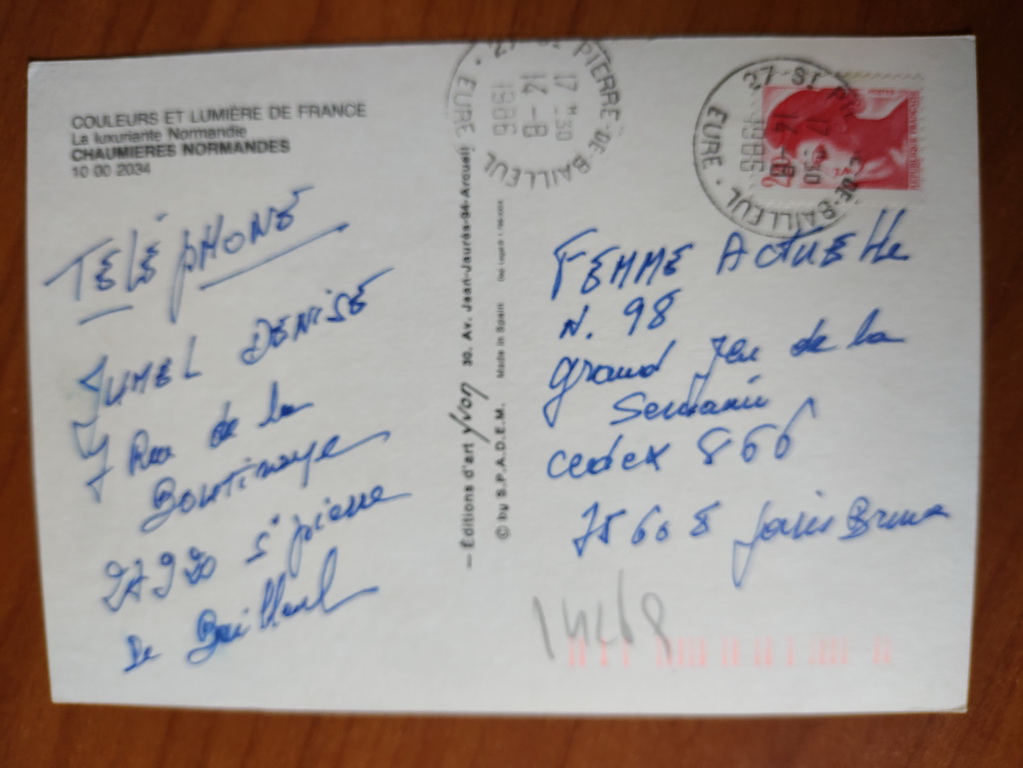 COULEURS ET LUMIÈRE DE FRANCE
La luxuriante Normandie
CHAUMIERES NORMANDES
10 00 2034
TÉLÉPHONE
JUMEL DENISE
7 Rue de la
27920 St pierre
De Bailleul
— Éditions d'art yvon 30, Av. Jean-Jaurès-94-Arcueil
© by S.P.A.D.E.M. Made in Spain
27 ST PIERRE-DE-BAILLEUL
17 H 30
14-8
1986
EURE
27 ST PIERRE-DE-BAILLEUL
17 H 30
14-8
1986
EURE
FEMME ACTUELLE
N. 98
grand Jeu de la
Semaine
cedex 866
75608 paris Brune